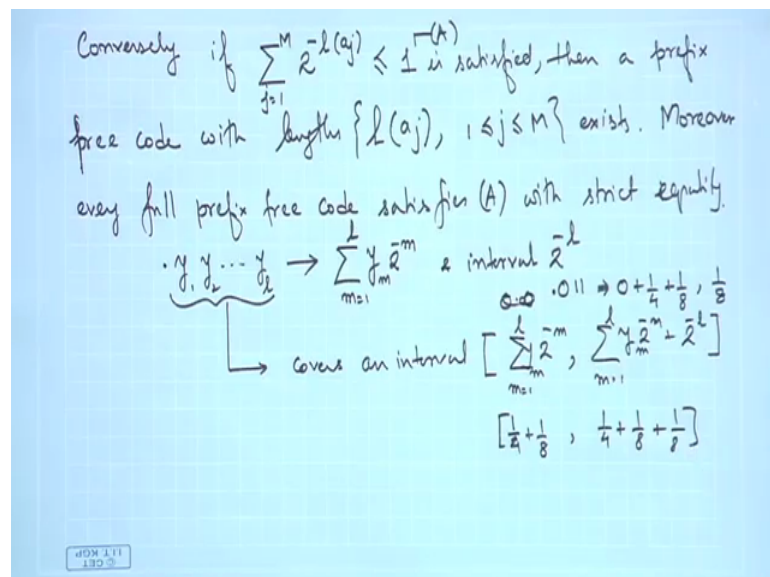 Conversely if ∑_{j=1}^{M} 2^{-l(aj)} ≤ 1 is satisfied, then a prefix
(A)
free code with lengths {l(aj), 1 ≤ j ≤ M} exists. Moreover
every full prefix free code satisfies (A) with strict equality.
. y₁ y₂ ... y_l → ∑_{m=1}^{l} y_m 2^{-m} & interval 2^{-l}
.011 → 0 + 1/4 + 1/8 , 1/8
→ covers an interval [ ∑_{m=1}^{l} y_m 2^{-m} , ∑_{m=1}^{l} y_m 2^{-m} + 2^{-l} ]
[ 1/4 + 1/8 , 1/4 + 1/8 + 1/8 ]
© CET
I.I.T. KGP